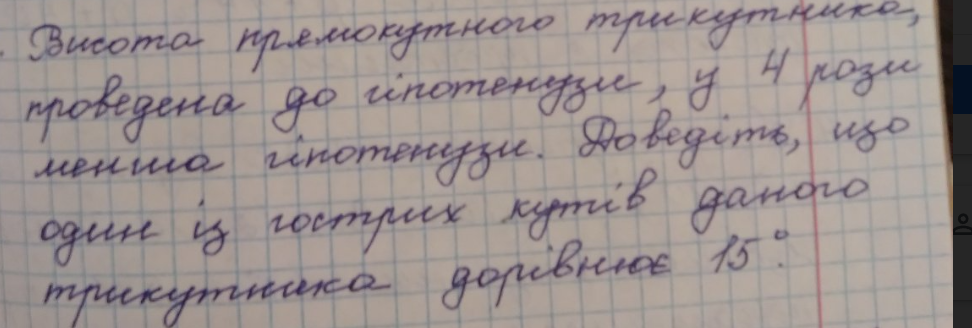 Висота прямокутного трикутника,
проведена до гіпотенузи, у 4 рази
менша гіпотенузи. Доведіть, що
один із гострих кутів даного
трикутника дорівнює 15°.